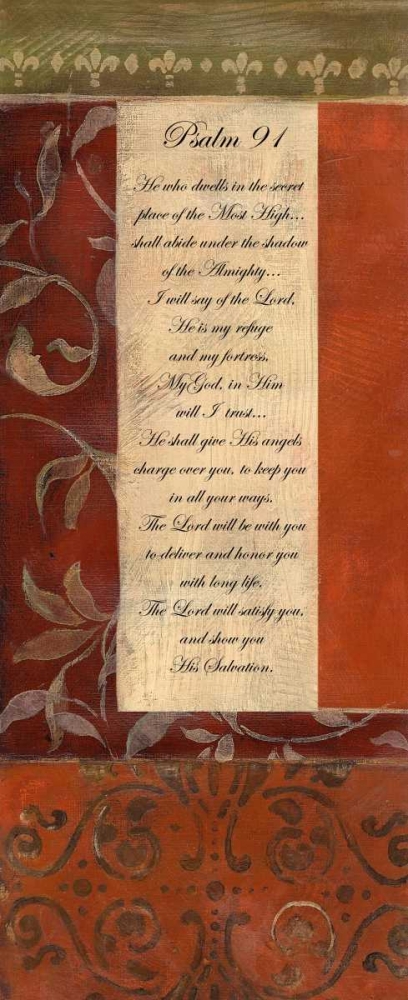 Psalm 91
He who dwells in the secret
place of the Most High...
shall abide under the shadow
of the Almighty...
I will say of the Lord,
He is my refuge
and my fortress,
My God, in Him
will I trust...
He shall give His angels
charge over you, to keep you
in all your ways.
The Lord will be with you
to deliver and honor you
with long life,
The Lord will satisfy you,
and show you
His Salvation.